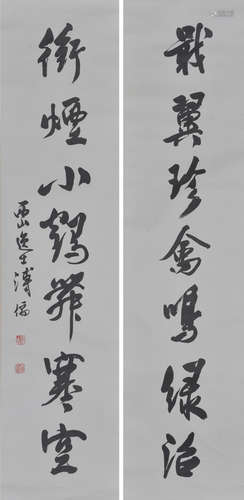 戢翼珍禽鳴綠沼
銜煙小鶴舞寒空
西山逸士溥儒